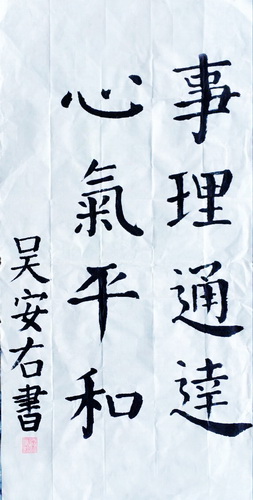 事理通達
心氣平和
吴安右書